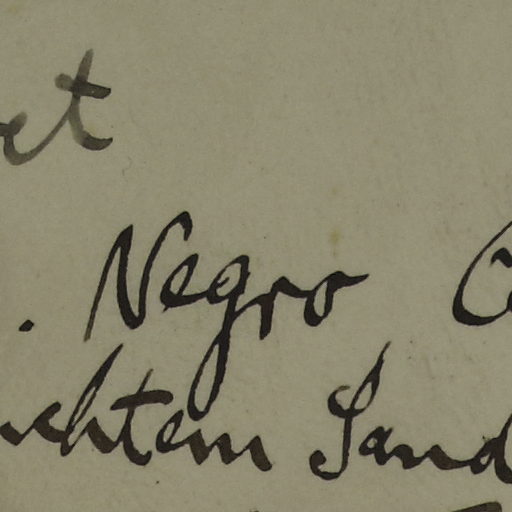 et
. Negro C
uchtem Sand